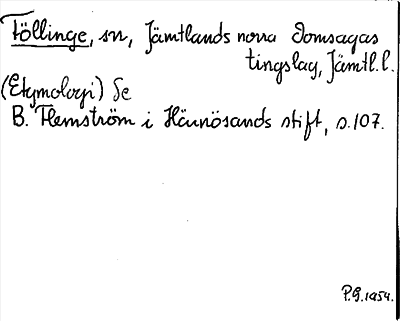 Föllinge, sn, Jämtlands norra domsagas
tingslag, Jämtl. l.
(Etymologi) Se
B. Flemström i Härnösands stift, s. 107.
P.G. 1954.